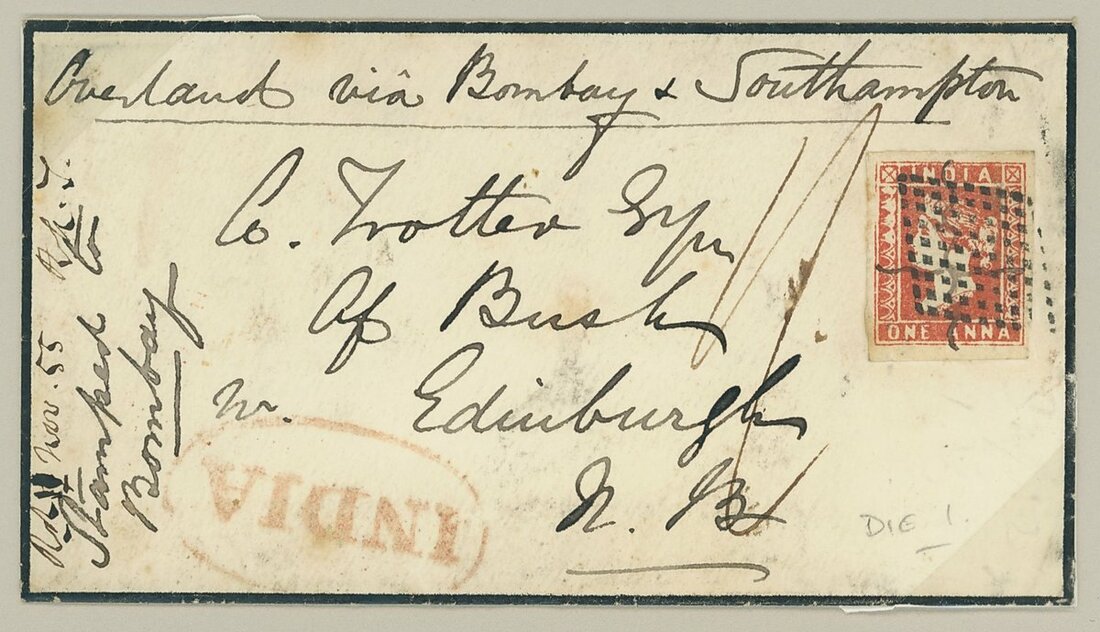 Overland viâ Bombay & Southampton
C. Trotter Esqr
Of Bush
nr. Edinburgh
N. B
INDIA
ONE ANNA
INDIA
DIE 1.
Nov. 55
Stamped to
Bombay